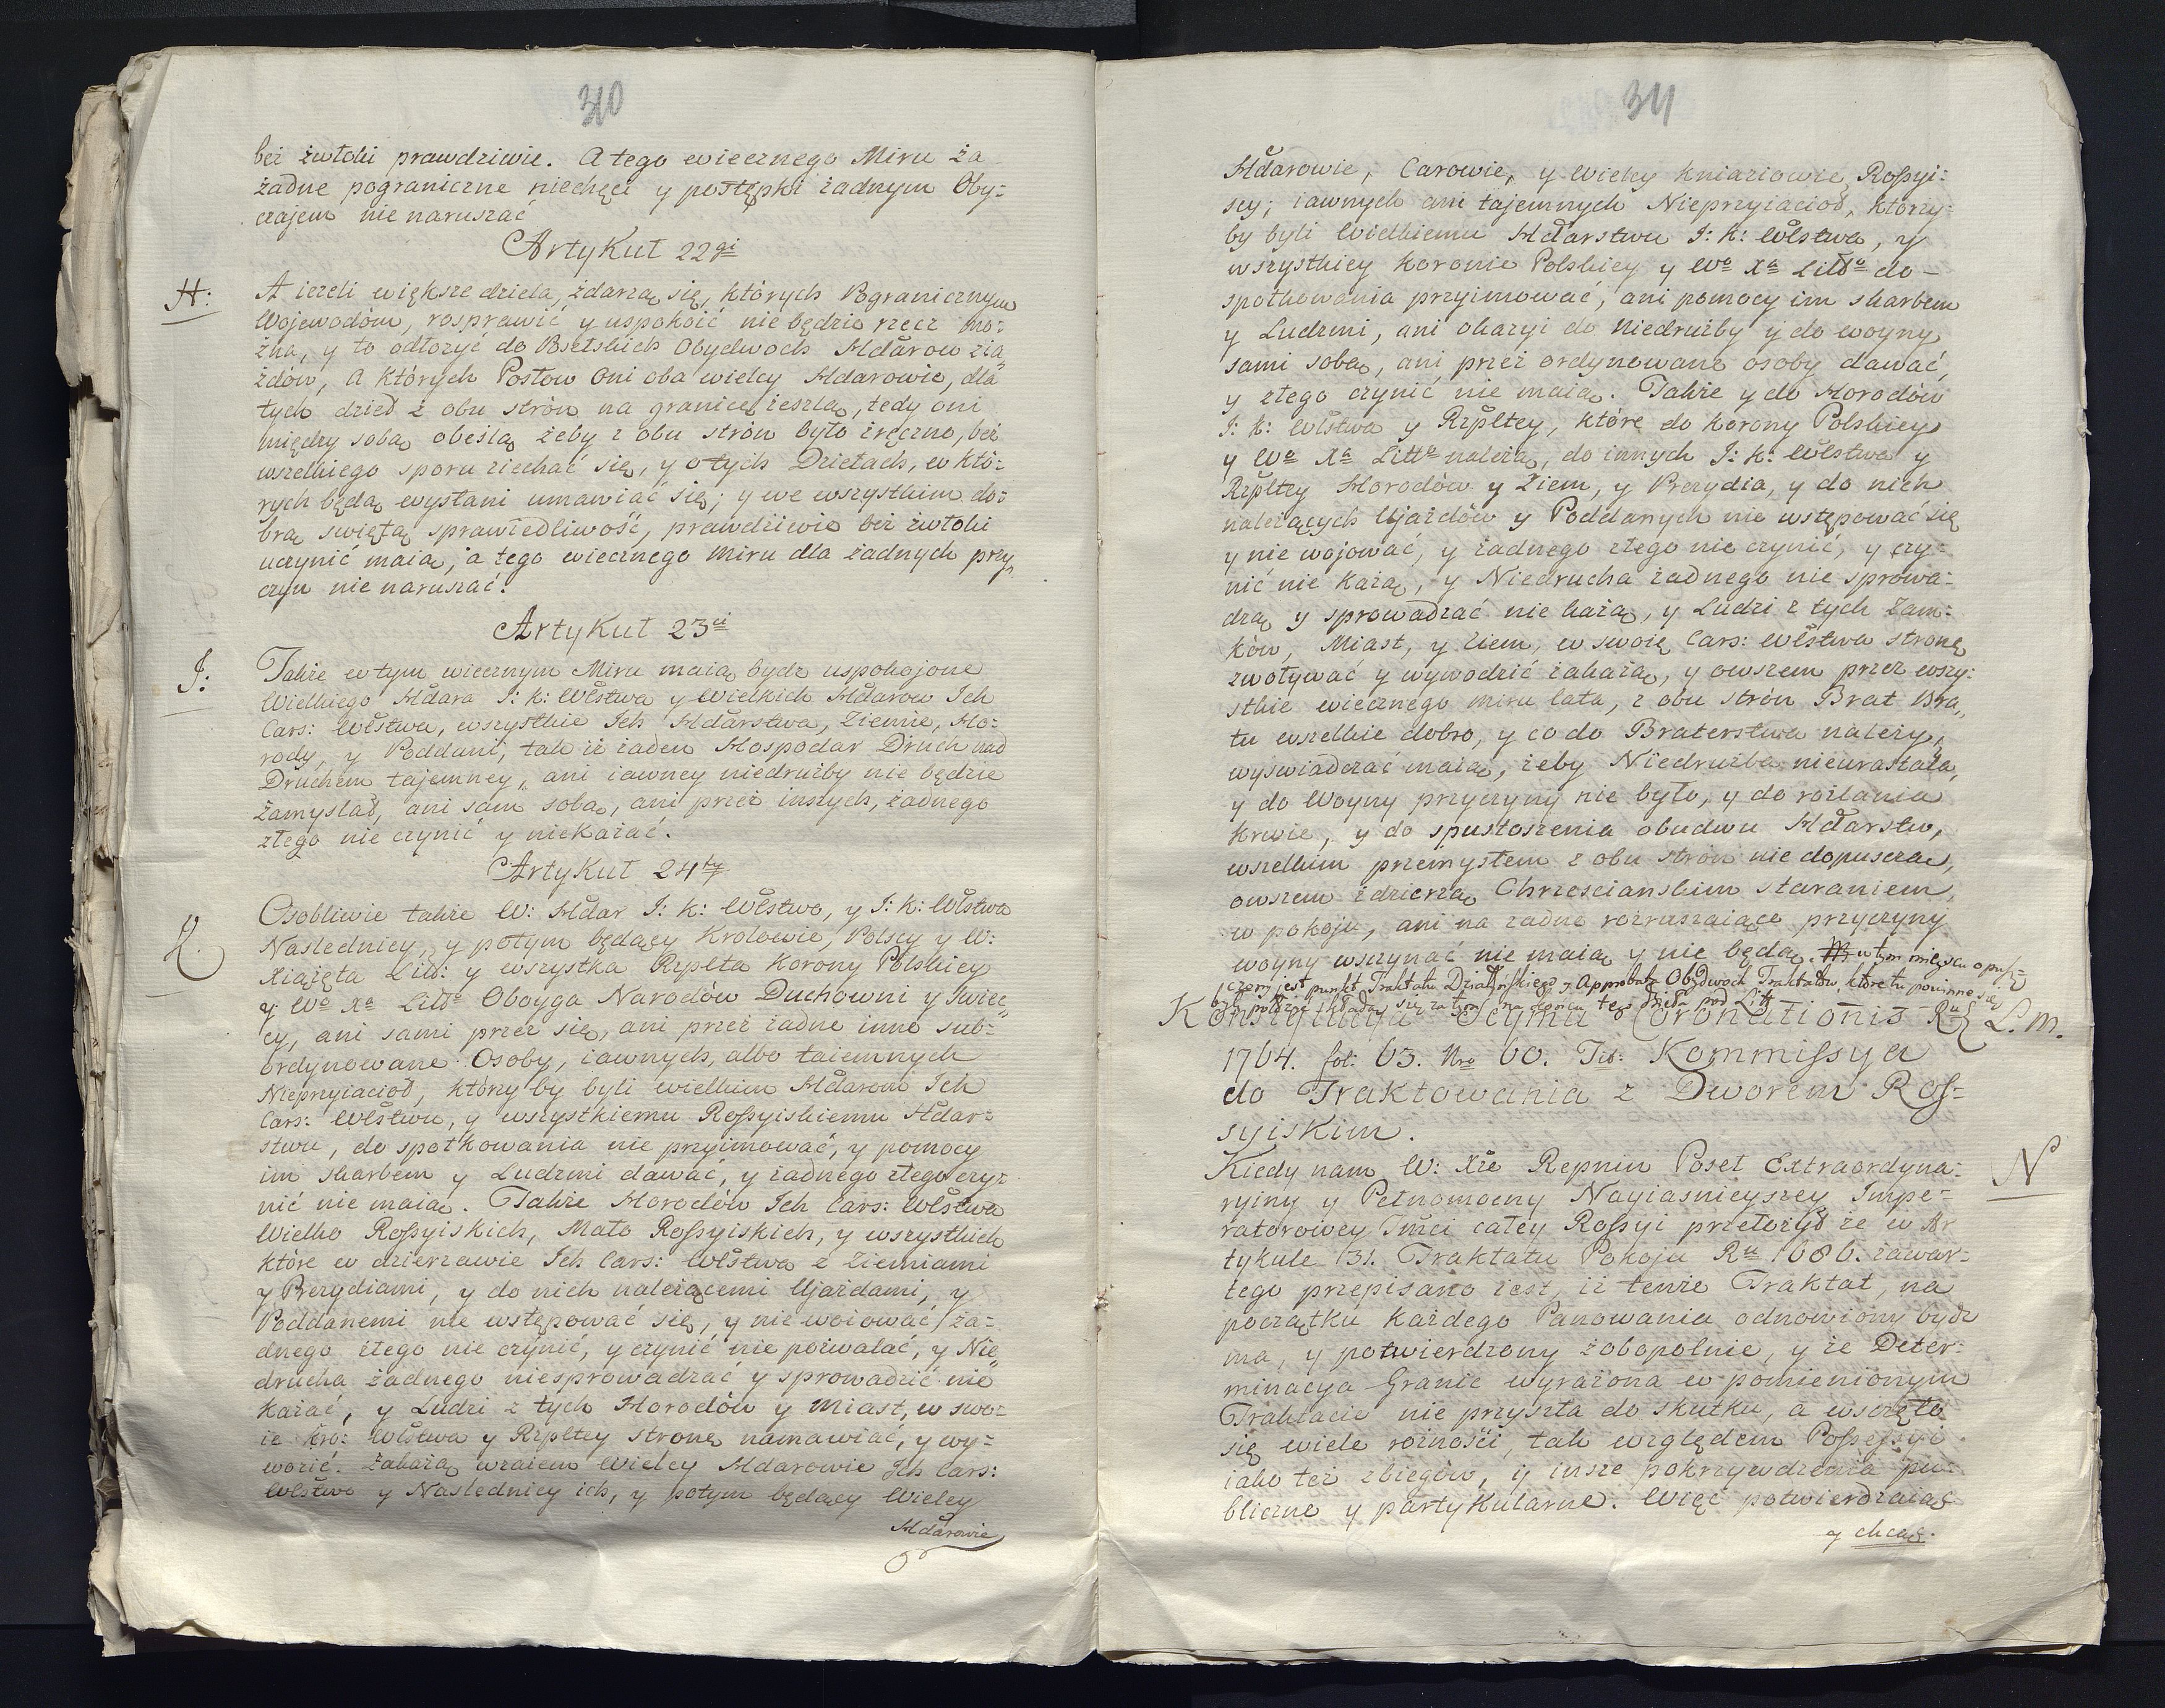 310
bez zwłoki prawdziwie. A tego wiecznego Miru za
żadne pograniczne niechęci y postępki żadnym Oby-
czajem nie naruszać
Artykuł 22gi
H:
A ieżeli większe dzieła, zdarzą się, których Pogranicznym
Wojewodom, rosprawić y uspokoić nie będzie rzecz mo-
żna, y to odłożyć do Poselskich Obydwoch Hdarow zia-
zdów, A których Posłow Oni oba wielcy Hdarowie, dla
tych dzieł z obu strón na granicę ześzlą, tedy oni
między sobą obeślą żeby z obu strón było zręczno, bez
wszelkiego sporu ziechać się, y o tych Dziełach, w któ-
rych będą wysłani umawiać się; y we wszystkim do-
brą swiętą sprawiedliwość, prawdziwie bez zwłoki
uczynić maią, a tego wiecznego Miru dla żadnych przy-
czyn nie naruszać.
Artykuł 23ci
J:
Także w tym wiecznym Miru maią bydz uspokojone
Wielkiego Hdara J: K: Włstwa y Wielkich Hdarow Ich
Cars: Włstwa, wszystkie Ich Hdarstwa, Ziemie, Ho-
rody, y Poddani, tak iż żaden Hospodar Druch nad
Druchem tajemney, ani iawney niedrużby nie będzie
zamyslał, ani sam sobą, ani przez inszych, żadnego
złego nie czynić y niekazać.
Artykuł 24ty
Osobliwie także W: Hdar J: K: Włstwo, y J: K: Włstwa
Naslednicy, y potym będący Krolowie, Polscy y W:
Xiążęta Litt: y wszystka Rzplta Korony Polskiey
y Wo Xa Litto Oboyga Narodów Duchowni y Swiec-
cy, ani sami przez się, ani przez żadne inne sub-
ordynowane Osoby, iawnych, albo taiemnych
Nieprzyiacioł, którzy by byli wielkim Hdarom Ich
Cars: Włstwu, y wszystkiemu Rossyiskiemu Hdar-
stwu, do spotkowania nie przyimować, y pomocy
im skarbem y Ludzmi dawać, y żadnego złego czy-
nić nie maią. Także Horodów Ich Cars: Włstwa
Wielko Rossyiskich, Mało Rossyiskich, y wszystkich
które w dzierzawie Ich Cars: Włstwa z Ziemiami
y Prezydiami, y do nich należącemi Ujazdami, y
Poddanemi nie wstępować się, y nie woiować, ża-
dnego złego nie czynić, y czynić nie pozwalać, y Nie-
drucha żadnego niesprowadzać y sprowadzić nie
kazać, y Ludzi z tych Horodów y Miast, w swo-
ie Kro: Włstwa y Rzpltey stronę namawiać, y wy-
wozić. Zakażą wzaiem Wielcy Hdarowie Ich Cars:
Włstwo y Naslednicy ich, y potym będący Wielcy
Hdarowie
311
Hdarowie, Carowie, y Wielcy Kniaziowie Rossyi-
scy; iawnych ani tajemnych Nieprzyiacioł, którzy-
by byli Wielkiemu Hdarstwu J: K: Włstwa, y
wszystkiey Koronie Polskiey y Wo Xa Litto do-
spotkowania przyimować, ani pomocy im skarbem
y Ludzmi, ani okazyi do Niedrużby y do woyny
sami sobą, ani przez ordynowane osoby dawać,
y złego czynić nie maią. Także y do Horodów
J: K: Włstwa y Rzpltey, które do Korony Polskiey
y Wo Xa Litto należą, do innych J: K: Włstwa y
Rzpltey Horodów y Ziem, y Prezydia, y do nich
należących Ujazdów y Poddanych nie wstępować się
y nie wojować, y żadnego złego nie czynić, y czy-
nić nie każą, y Niedrucha żadnego nie sprowa-
dzą y sprowadzać nie każą, y Ludzi z tych Zam-
ków, Miast, y Ziem, w swoię Cars: Włstwa stronę
zwoływać y wywodzić zakażą, y owszem przez wszy-
stkie wiecznego Miru lata, z obu strón Brat Bra-
tu wszelkie dobro, y co do Braterstwa należy,
wyswiadczać maią, żeby Niedrużba nieurastała,
y do Woyny przyczyny nie było, y do rozlania
krwie, y do spustoszenia obudwu Hdarstw,
wszelkim przemysłem z obu strón nie dopuszczać,
owszem zdzierzą Chrzescianskim staraniem,
w pokoju, ani na żadne rozruszaiące przyczyny
woyny wszczynać nie maią y nie będą. w tym mieyscu opusz-
czony jest punkt Traktatu Działyńskiego y Approbata Obydwoch Traktatów, które tu powinne się
być położyć kładą się za tym na końcu tego dzieła pod Litt
L. M.
Konstytucyja Seymu Coronationis Ru
1764. fol: 63. Nro 60. Tit: Kommissya
do Traktowania z Dworem Ros-
syiskim.
N
Kiedy nam W: Xże Repnin Poseł Extraordyna-
ryiny y Pełnomocny Nayiasnieyszey Impe-
ratorowey Jmci całey Rossyi przełożył że w Ar
tykule 31. Traktatu Pokoju Ru 1686. zawar-
tego przepisano iest, iż tenże Traktat, na
początku każdego Panowania odnowiony bydz
ma, y potwierdzony zobopolnie, y że Deter-
minacya Granic wyrażona w pomienionym
Traktacie nie przyszła do skutku, a wszczęło
się wiele rożności, tak względem Possessyi
iako też zbiegów, y insze pokrzywdzenia pu-
bliczne y partykularne. Więc potwierdzaiąc
y chcąc.